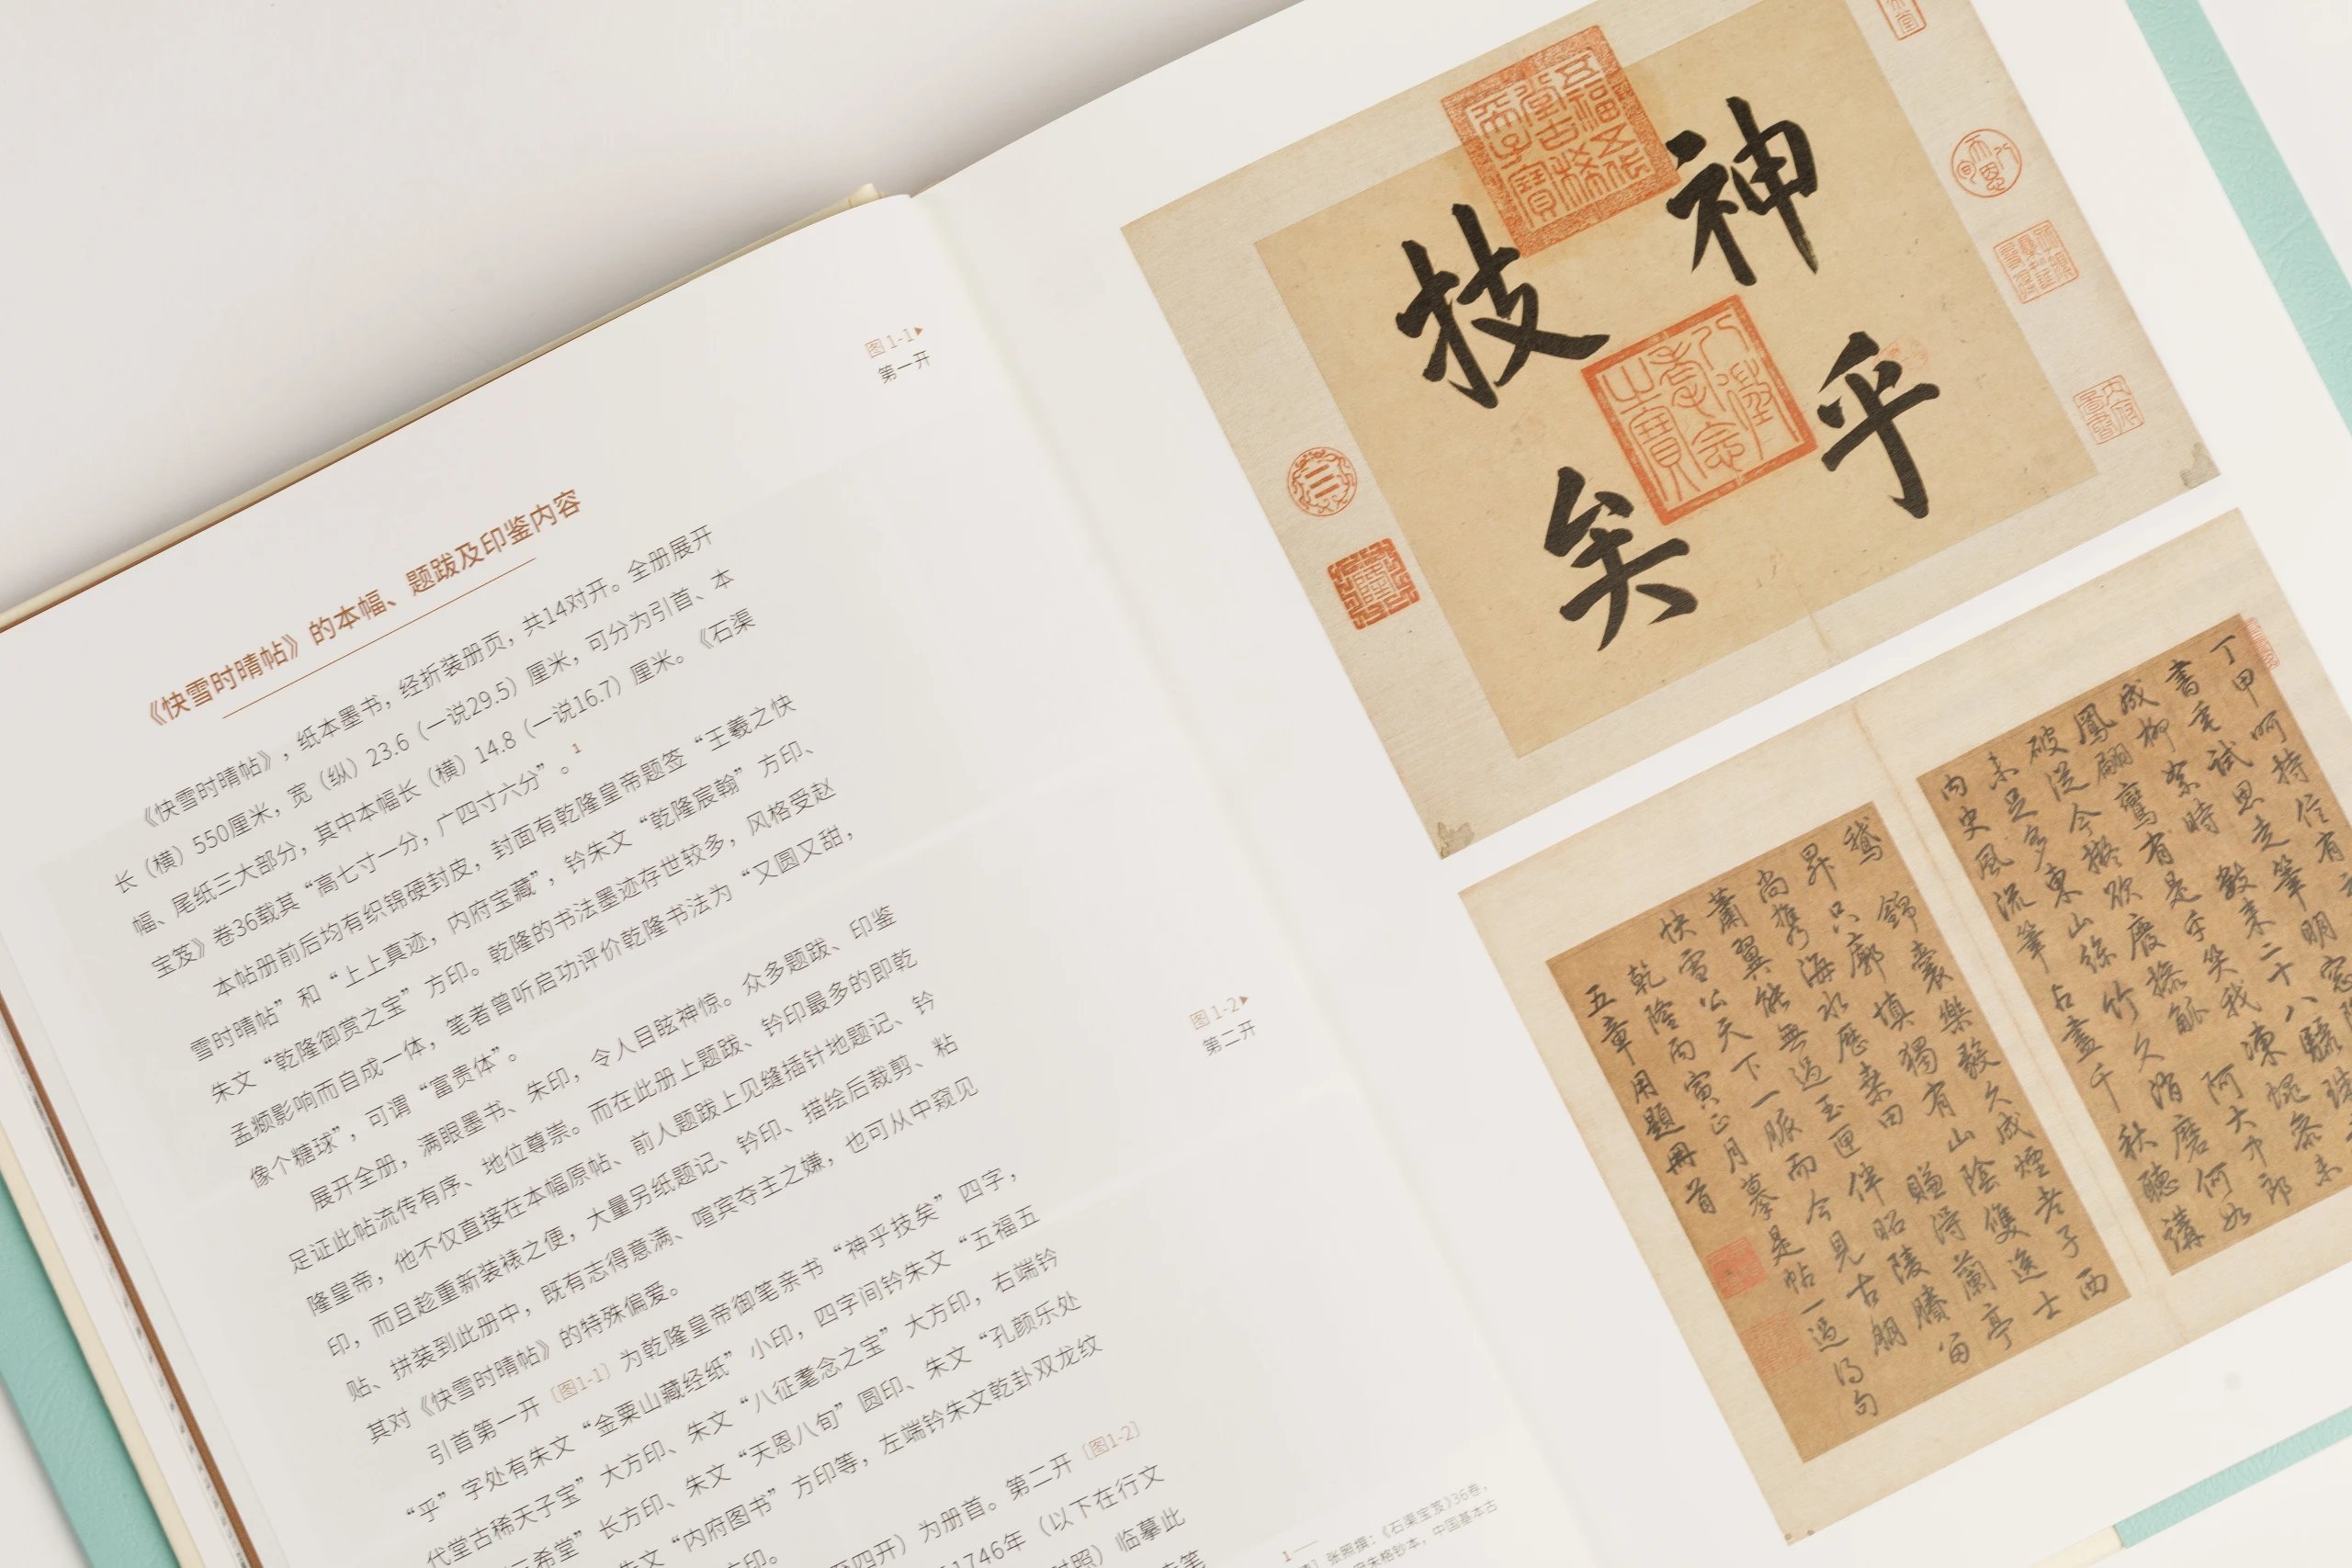 图1-1▸
第一开
《快雪时晴帖》的本幅、题跋及印鉴内容
《快雪时晴帖》，纸本墨书，经折装册页，共14对开。全册展开
长（横）550厘米，宽（纵）23.6（一说29.5）厘米，可分为引首、本
幅、尾纸三大部分，其中本幅长（横）14.8（一说16.7）厘米。《石渠
宝笈》卷36载其“高七寸一分，广四寸六分”。1
本帖册前后均有织锦硬封皮，封面有乾隆皇帝题签“王羲之快
雪时晴帖”和“上上真迹，内府宝藏”，钤朱文“乾隆宸翰”方印、
朱文“乾隆御赏之宝”方印。乾隆的书法墨迹存世较多，风格受赵
孟頫影响而自成一体，笔者曾听启功评价乾隆书法为“又圆又甜，
像个糖球”，可谓“富贵体”。
展开全册，满眼墨书、朱印，令人目眩神惊。众多题跋、印鉴
足证此帖流传有序、地位尊崇。而在此册上题跋、钤印最多的即乾
隆皇帝，他不仅直接在本幅原帖、前人题跋上见缝插针地题记、钤
印，而且趁重新装裱之便，大量另纸题记、钤印、描绘后裁剪、粘
贴、拼装到此册中，既有志得意满、喧宾夺主之嫌，也可从中窥见
其对《快雪时晴帖》的特殊偏爱。
引首第一开〔图1-1〕为乾隆皇帝御笔亲书“神乎技矣”四字，
“乎”字处有朱文“金粟山藏经纸”小印，四字间钤朱文“五福五
代堂古稀天子宝”大方印、朱文“八征耄念之宝”大方印，右端钤
三希堂”长方印、朱文“天恩八旬”圆印、朱文“孔颜乐处
朱文“内府图书”方印等，左端钤朱文乾卦双龙纹
方印。
至四开）为册首。第二开〔图1-2〕
1746年（以下在行文
对照）临摹此
图1-2▸
第二开
1
张照撰：《石渠宝笈》36卷，
朱格钞本，中国基本古
神乎
技矣
五福五代堂古稀天子寶
八徵耄念之寶
丁甲呵持信有
書重試思走筆明窓
成柳絮時數来二十八驪珠
鳳翩鸞有是乎笑我凍蠅
破渥今擬欣慶撫觚阿大中郎
未足多東山絲竹久消磨何如
内史風流筆占盡千秋聽講
鵝 錦囊樂毅久成煙老子西
昇只廓填獨有山陰雙逸士
尚攜海水歷桑田賺得蘭亭
蕭翼能無過玉匣伴昭陵賸留
快雪公天下一脈而今見古朋
乾隆丙寅正月摹是帖一過得句
五章用題冊首